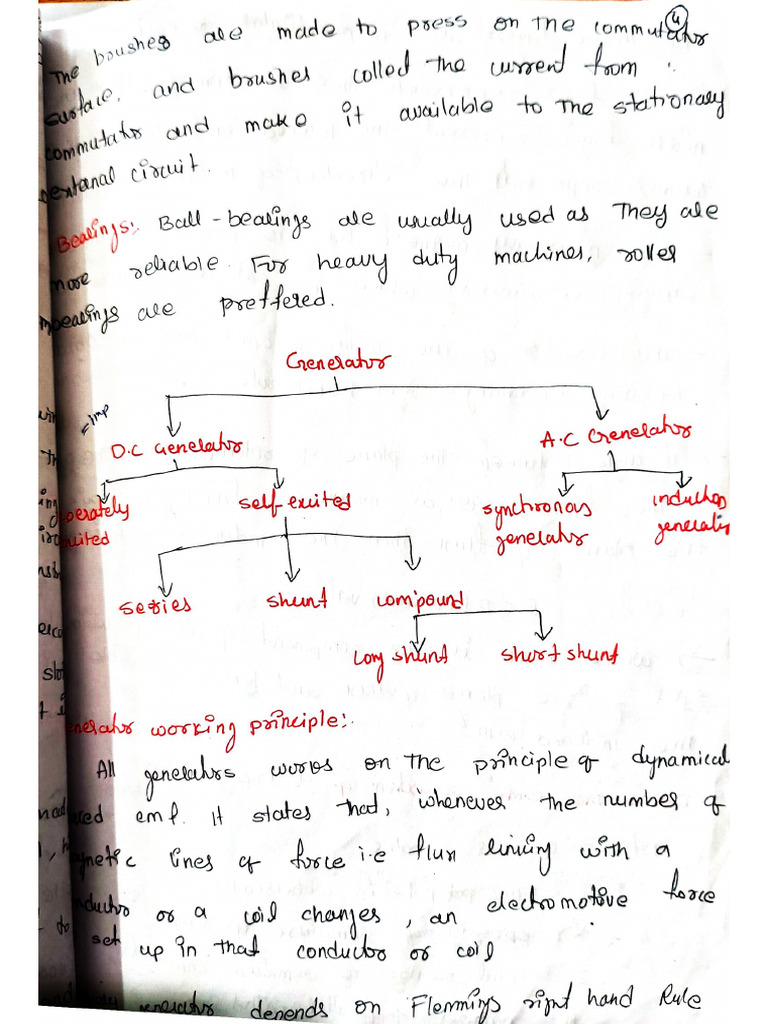 4
The boushes are made to press on the commutator
surface, and brushes colled the current from
commutator and make it available to the stationary
extanal circuit.
Bearings:. Ball-bearings are usually used as They are
more reliable. For heavy duty machines, roller
bearings are preffered.
Generator
=Imp
D.C Generator
A.C Generator
perately
exited
self-exited
synchronous
generator
induction
generatin
series
shunt
compound
long shunt
short shunt
enerator working principle:.
All generators works on the principle of dynamical
uced emf. It states that, whenever the number of
gnetic lines of force i.e flux linking with a
nductor or a coil changes, an electromotive force
set up in that conductor or coil
generator depends on Flemmings right hand Rule